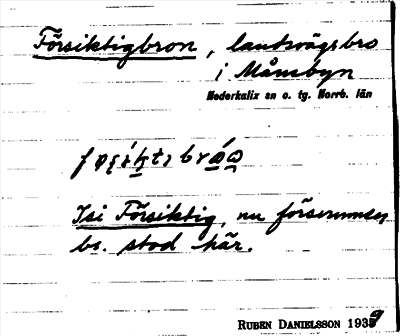 Försiktigbron, landsvägsbro
i Månsbyn
Nederkalix sn o. tg. Norrb. län
Isi Försiktig, nu försvunnen
bs. stod här.
RUBEN DANIELSSON 1939